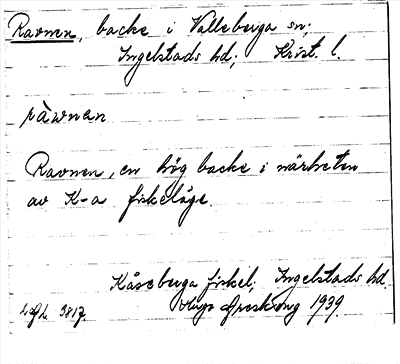 Ravnen, backe i Valleberga sn;
Ingelstads hd; Krist. l.
ràwnan
Ravnen, en hög backe i närheten
av K-a fiskeläge.
Kåseberga fiskel. Ingelstads hd.
3817. Hugo Areskoug 1939.